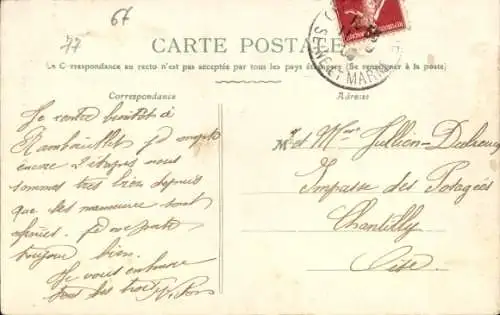 67
77
CARTE POSTALE
La Correspondance au recto n'est pas acceptée par tous les pays étrangers (Se renseigner à la poste)
SEINE-ET-MARNE
Correspondance
Adresse
Je rentre bientôt à
Rambouillet je compte
encore 2 étapes nous
sommes très bien depuis
que les manœuvre sont
finies. je me porte
toujour bien.
Je vous embrasse
tous les trois
M et Mme Jullien-
Impasse des Potagers
Chantilly
Oise.